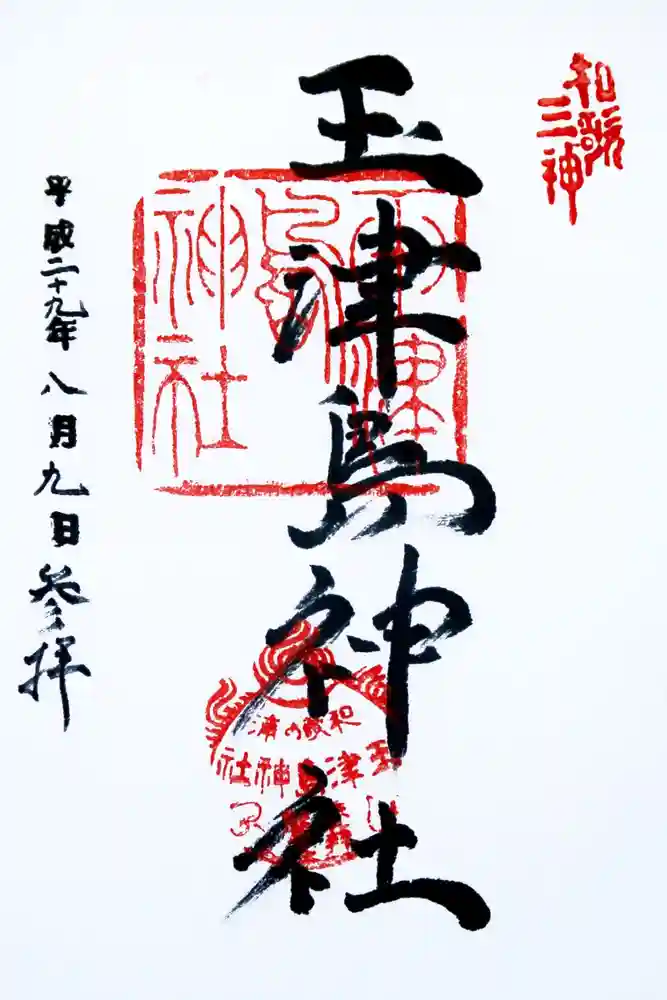 和歌
三神
玉津島神社
玉津島
神社
和歌の浦
玉津島神社
平成二十九年八月九日参拝